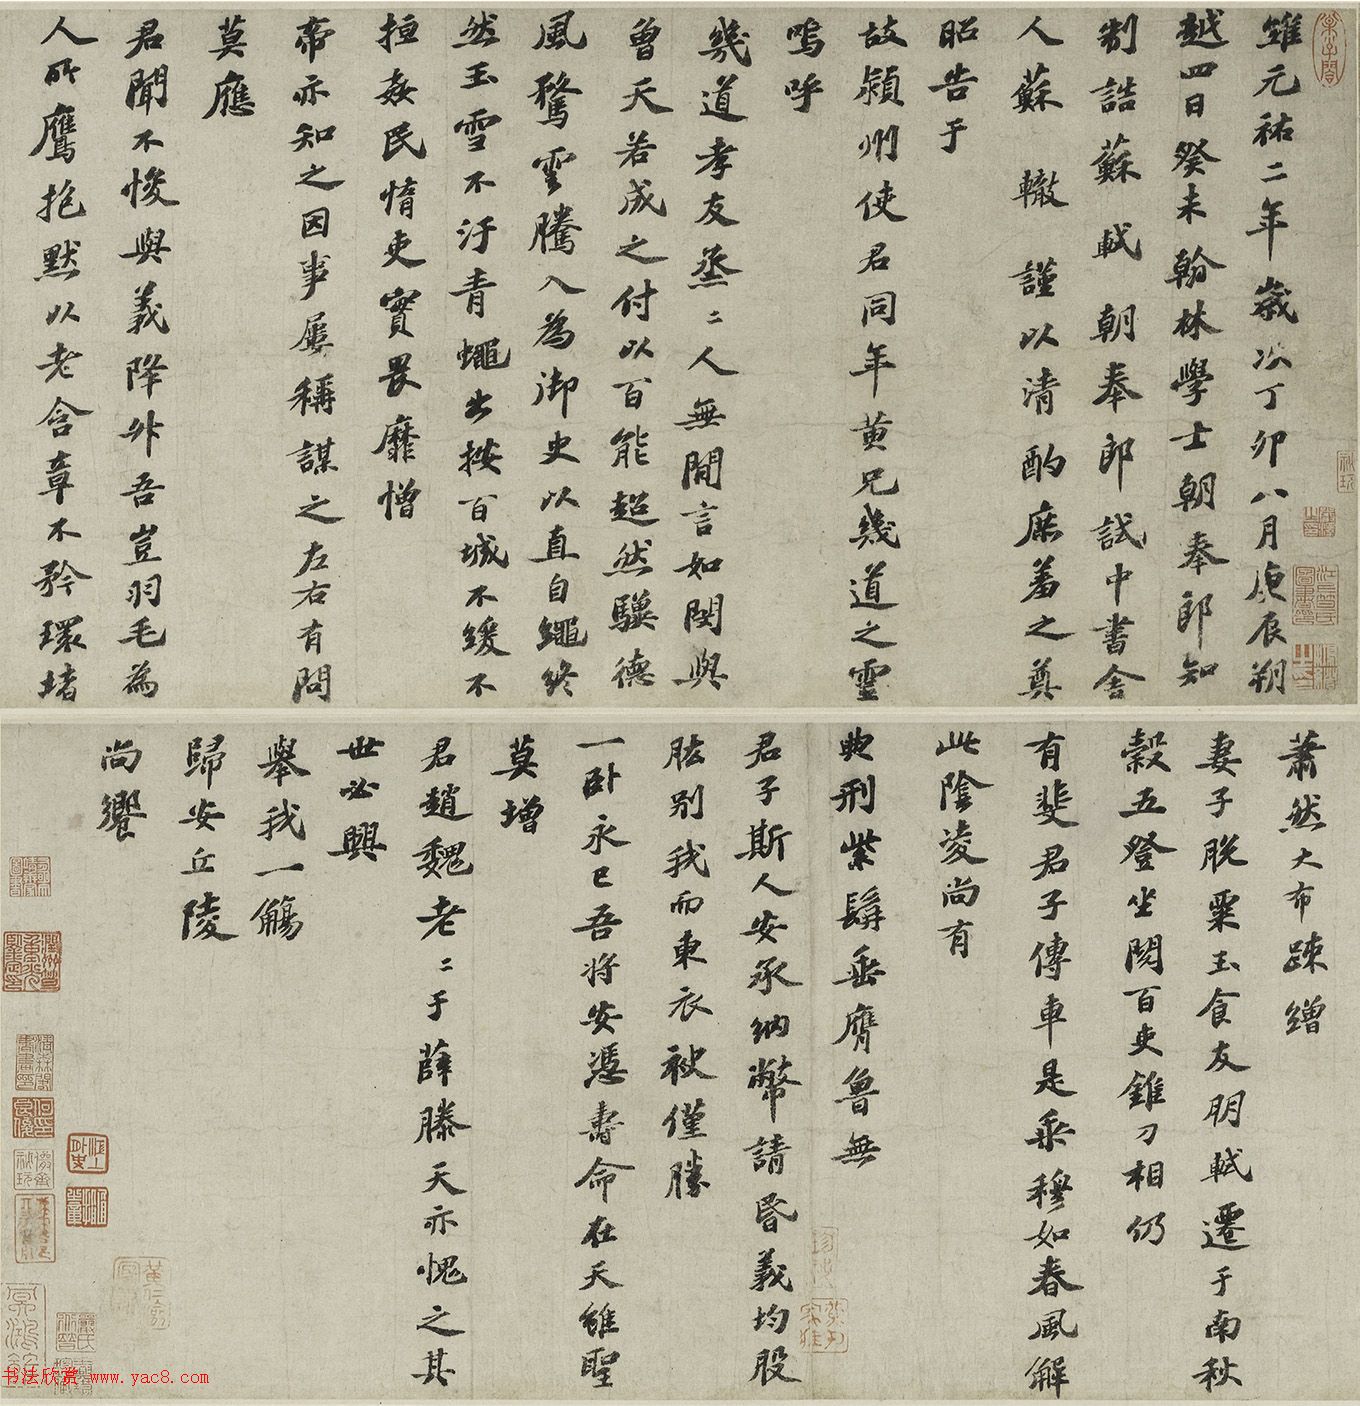 維元祐二年歲次丁卯八月庚辰朔
越四日癸未翰林學士朝奉郎知
制誥蘇軾朝奉郎試中書舍
人蘇轍謹以清酌庶羞之奠
昭告于
故潁州使君同年黃兄幾道之靈
嗚呼
幾道孝友烝二人無間言如閔與
曾天若成之付以百能超然驥德
風騖雲騰入為御史以直自繩終
然玉雪不汙青蠅出按百城不緩不
拒姦民惰吏實畏靡憎
帝亦知之因事屢稱謀之左右有問
莫應
君聞不悛與義降升吾豈羽毛為
人所鷹抱默以老含章不矜環堵
蕭然大布疎繒
妻子脫粟玉食友朋軾遷于南秋
穀五登坐閱百吏錐刀相仍
有斐君子傳車是乘穆如春風解
此陰凌尚有
典刑紫髯垂膺魯無
君子斯人安承納幣請昏義均股
肱別我而東衣袂僅勝
一臥永已吾將安憑壽命在天雖聖
莫增
君趙魏老二于薛滕天亦愧之其
世必興
舉我一觴
歸安丘陵
尚饗
书法欣赏 www.yac8.com